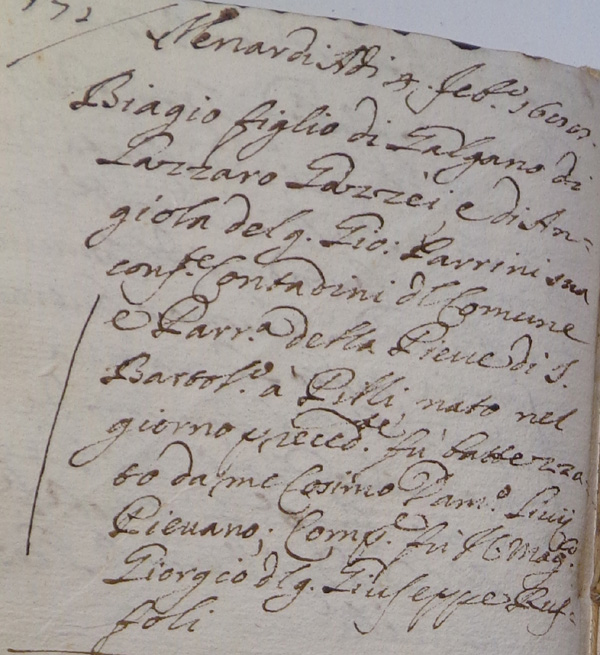 Venardi Adi 4. Feb.º
Biagio figlio di Galgano di
Lazzaro Gazzèi, e di An-
giola del q. Gio: Parrini sua
cons.te Contadini dl Comune
e Parr.a della Pieue di S.
Bartol.º à Pilli, nato nel
giorno preced.te, fu battezza-
to da me Cosimo Dam.º Liuij
Pieuano; Comp.e fù Il Mag.co
Giorgio dl q. Giuseppe Ruf-
foli